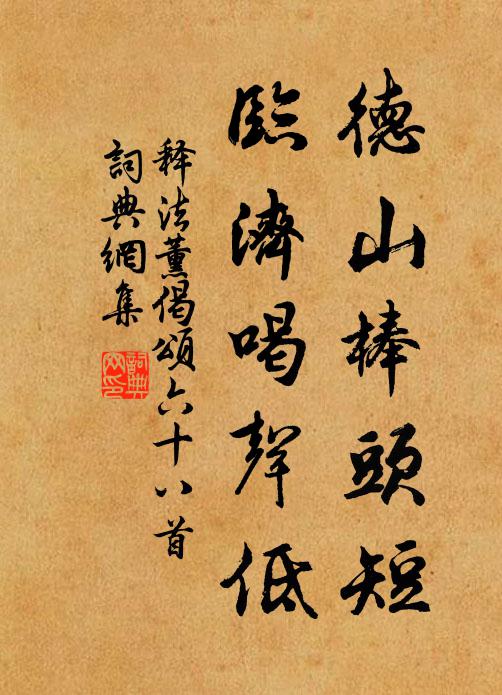 德山棒頭短
臨濟喝聲低
释法薰偈頌六十八首
詞典網集
詞典网印